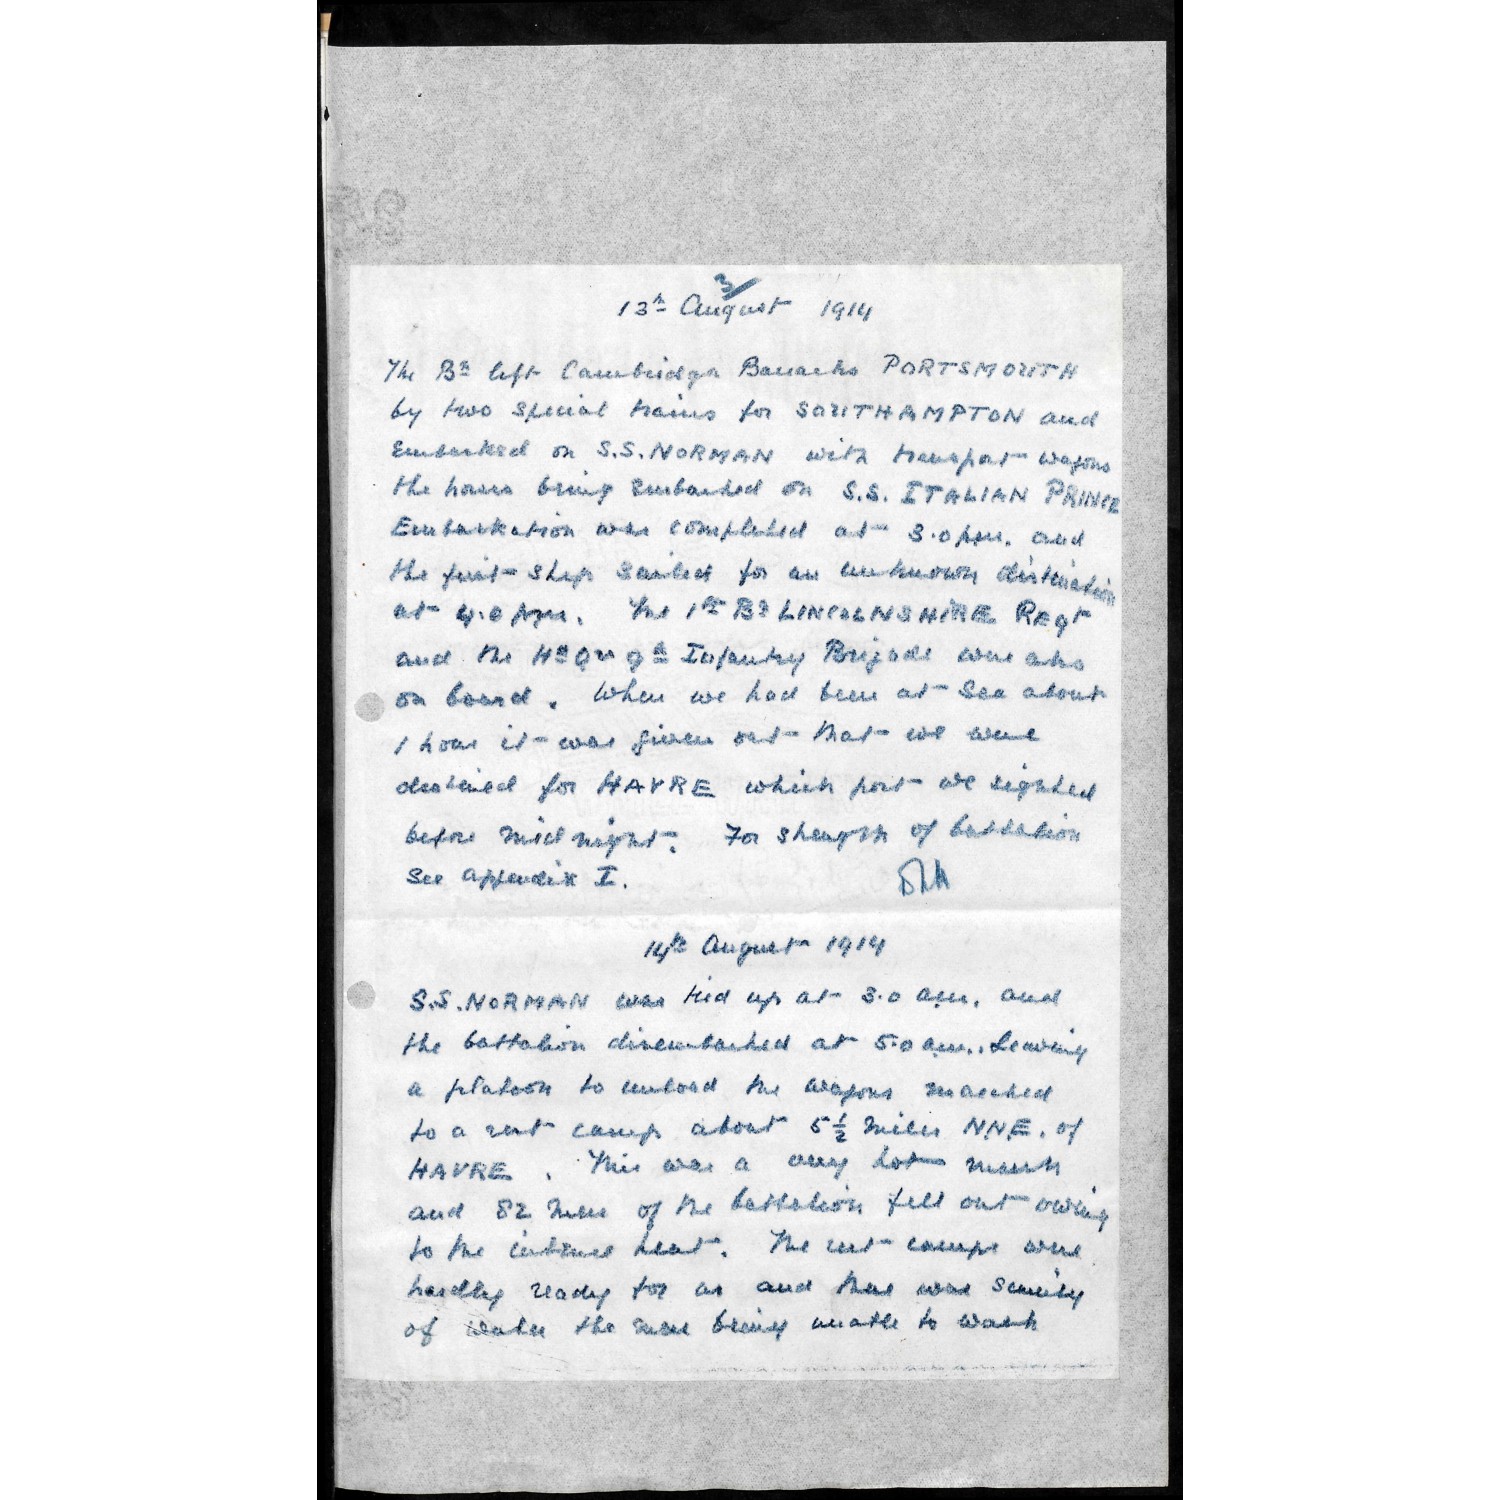 3
13th August 1914
The Bn left Cambridge Barracks PORTSMOUTH
by two special trains for SOUTHAMPTON and
embarked on S.S. NORMAN with transport wagons
the horses being embarked on S.S. ITALIAN PRINCE
Embarkation was completed at 3.0 p.m. and
the first ship sailed for an unknown destination
at 4.0 p.m. The 1st Bn LINCOLNSHIRE Regt
and the Hd Qrs 9th Infantry Brigade were also
on board. When we had been at Sea about
1 hour it was given out that we were
destined for HAVRE which port we sighted
before midnight. For strength of battalion
see appendix I.
14th August 1914
S.S. NORMAN was tied up at 3.0 a.m. and
the battalion disembarked at 5.0 a.m. Leaving
a platoon to unload the wagons marched
to a rest camp about 5½ miles N.N.E. of
HAVRE. This was a very hot march
and 82 men of the battalion fell out owing
to the intense heat. The rest camps were
hardly ready for us and there was scarcity
of water the men being unable to wash